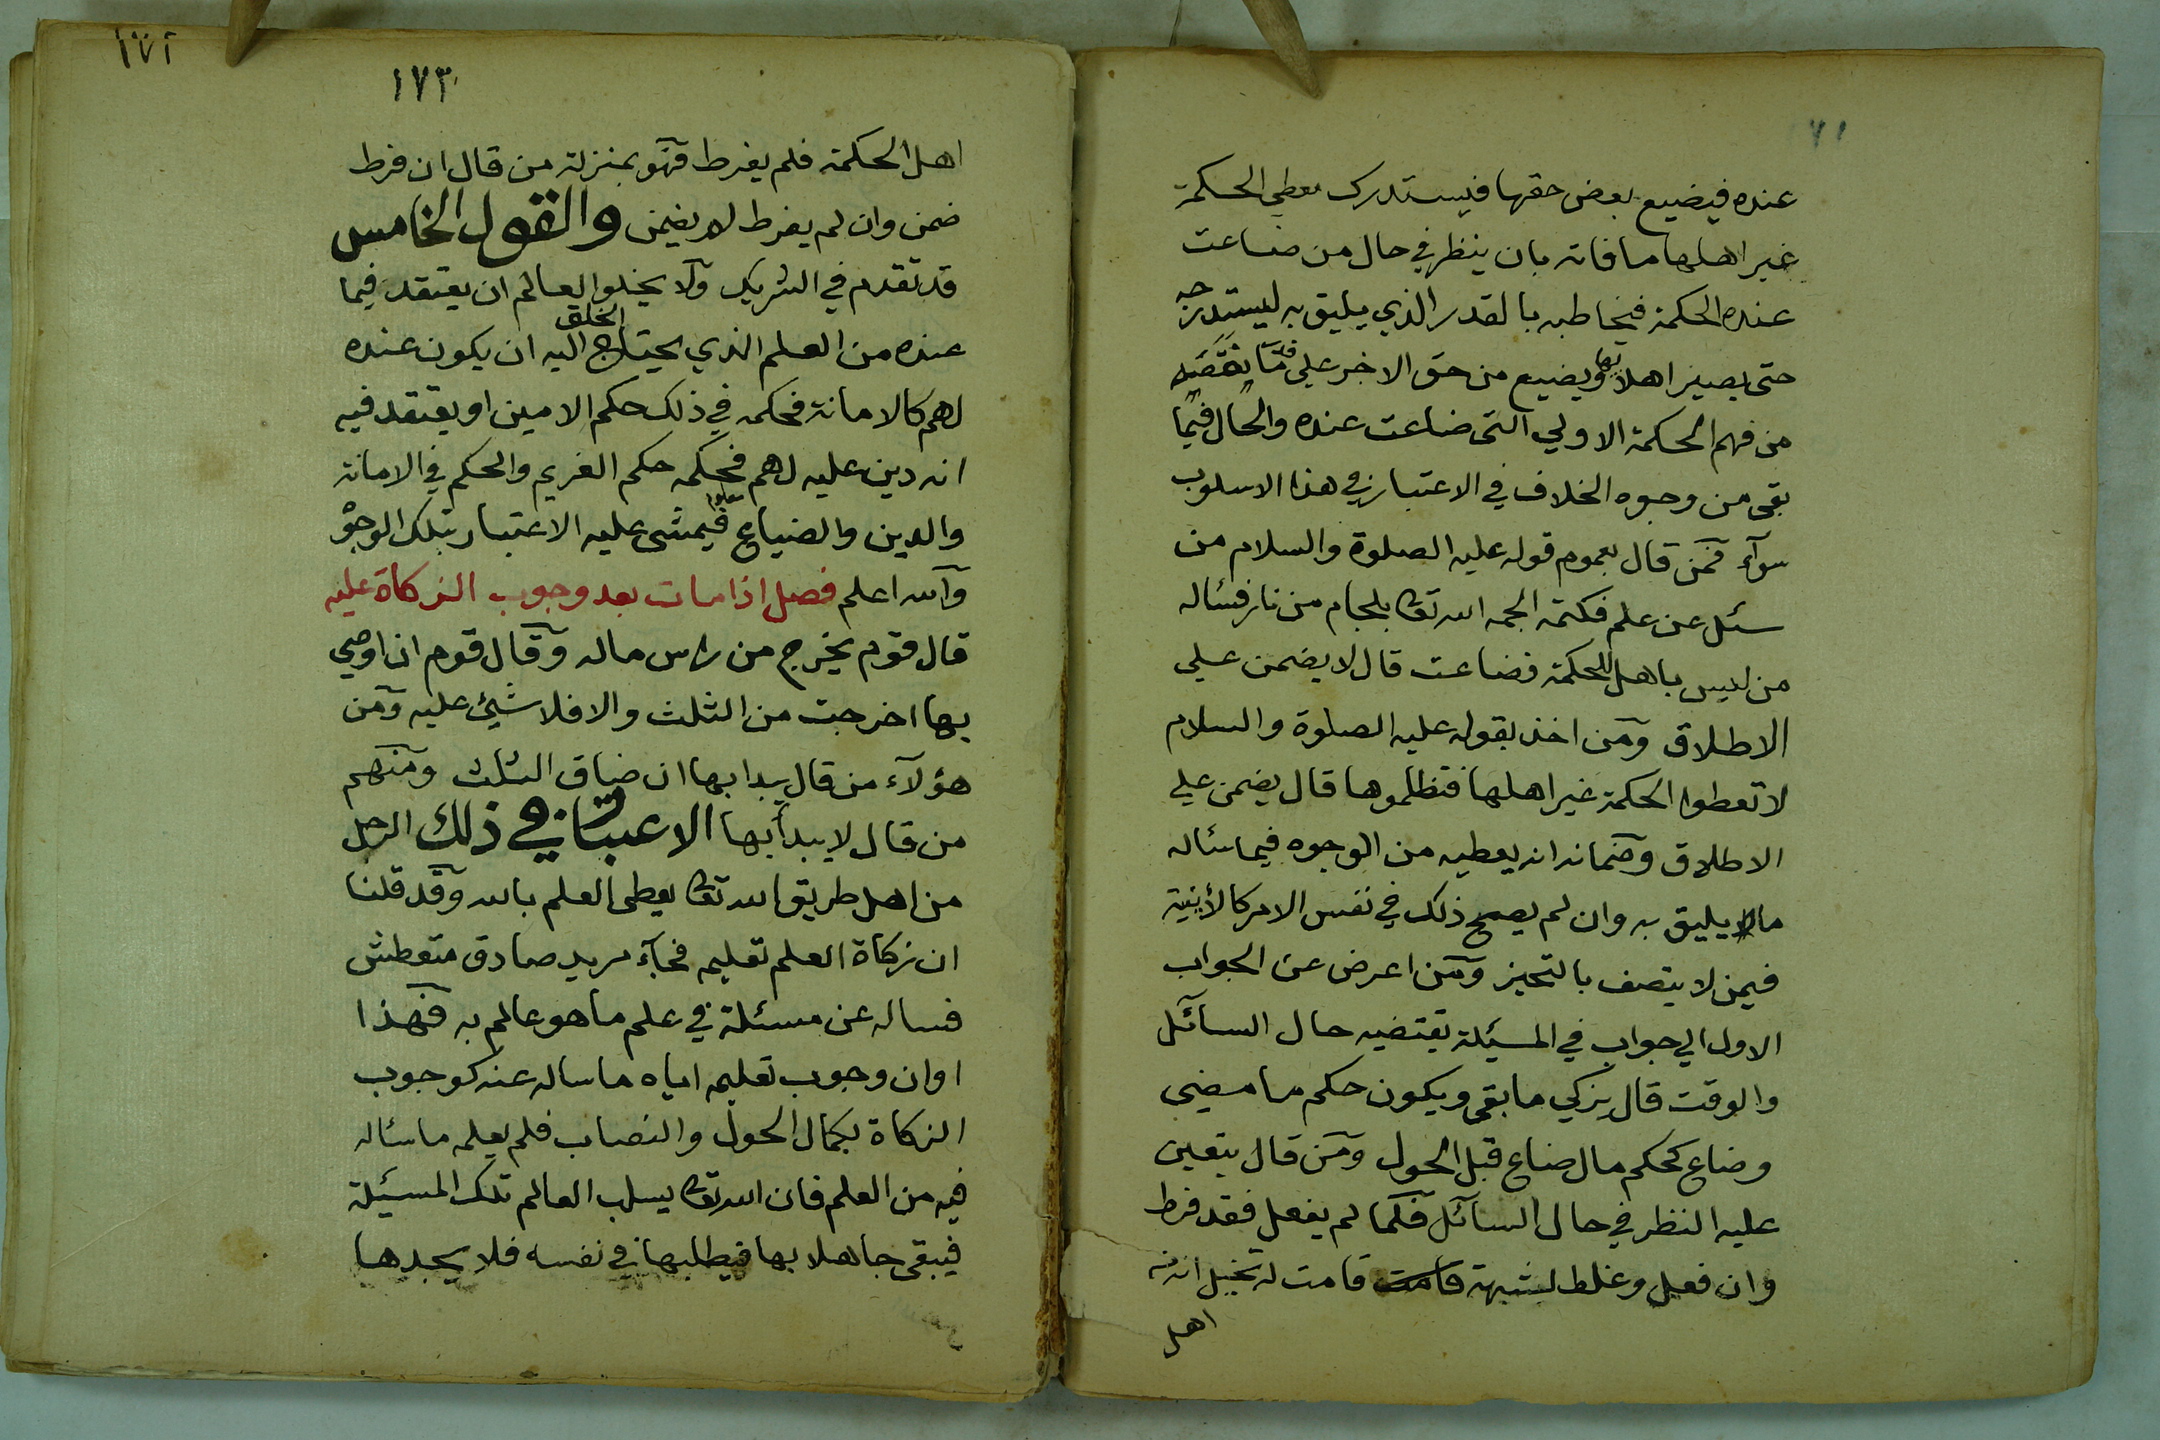 ٧١
عنده فيضيع بعض حقها فيستدرك معطي الحكمة
غير اهلها ما فاته بان ينظر في حال من ضاعت
عنده الحكمة فيخاطبه بالقدر الذي يليق به ليستدرجه
حتى يصير اهلا بها ويضيع من حق الاخر على قدر ما نقصه
من فهم الحكمة الاولي التي ضاعت عنده والحال فيما
بقى من وجوه الخلاف في الاعتبار في هذا الاسلوب
سوآء فمن قال بعموم قوله عليه الصلوة والسلام من
سئل عن علم فكتمه الجمه الله تعا بلجام من نار فسئاله
من ليس باهل للحكمة فضاعت قال لا يضمن علي
الاطلاق ومن اخذ بقوله عليه الصلوة والسلام
لا تعطوا الحكمة غير اهلها فتظلموها قال يضمن علي
الاطلاق وضمانه انه يعطيه من الوجوه فيما سئاله
ما يليق به وان لم يصح ذلك في نفس الامر كالأينية
فيمن لا يتصف بالتحيز ومن اعرض عن الجواب
الاول الي جواب في المسئلة يقتضيه حال السآئل
والوقت قال يزكي ما بقى ويكون حكم ما مضي
وضاع كحكم مال ضاع قبل الحول ومن قال يتعين
عليه النظر في حال السآئل فلما لم يفعل فقد فرط
وان فعل وغلط لشبهة قامت قامت له تخيل انه من
اهل
١٧٢
١٧٣
اهل الحكمة فلم يفرط فهو بمنزلة من قال ان فرط
ضمن وان لم يفرط لم يضمن والقول الخامس
قد تقدم في الشريك ولا يخلوا العالم ان يعتقد فيما
عنده من العلم الذي يحتاج الخلق اليه ان يكون عنده
لهم كالامانة فحكمه في ذلك حكم الامين او يعتقد فيه
انه دين عليه لهم فحكمه حكم الغريم والحكم في الامانة
والدين والضياع معلوم فيمشى عليه الاعتبار بتلك الوجوه
والله اعلم فصل اذا مات بعد وجوب الزكاة عليه
قال قوم يخرج من راس ماله وقال قوم ان اوصي
بها اخرجت من الثلث والا فلا شيئ عليه ومن
هؤلآء من قال يبدا بها ان ضاق الثلث ومنهم
من قال لا يبدأ بها الاعتبار في ذلك الرجل
من اهل طريق الله تعا يعطى العلم بالله وقد قلنا
ان زكاة العلم تعليمه فجآء مريد صادق متعطش
فساله عن مسئلة في علم ما هو عالم به فهذا
اوان وجوب تعليمه اياه ما ساله عنه كوجوب
الزكاة بكمال الحول والنصاب فلم يعلمه ما سئاله
فيه من العلم فان الله تعا يسلب العالم تلك المسئلة
فيبقى جاهلا بها فيطلبها في نفسه فلا يجدها